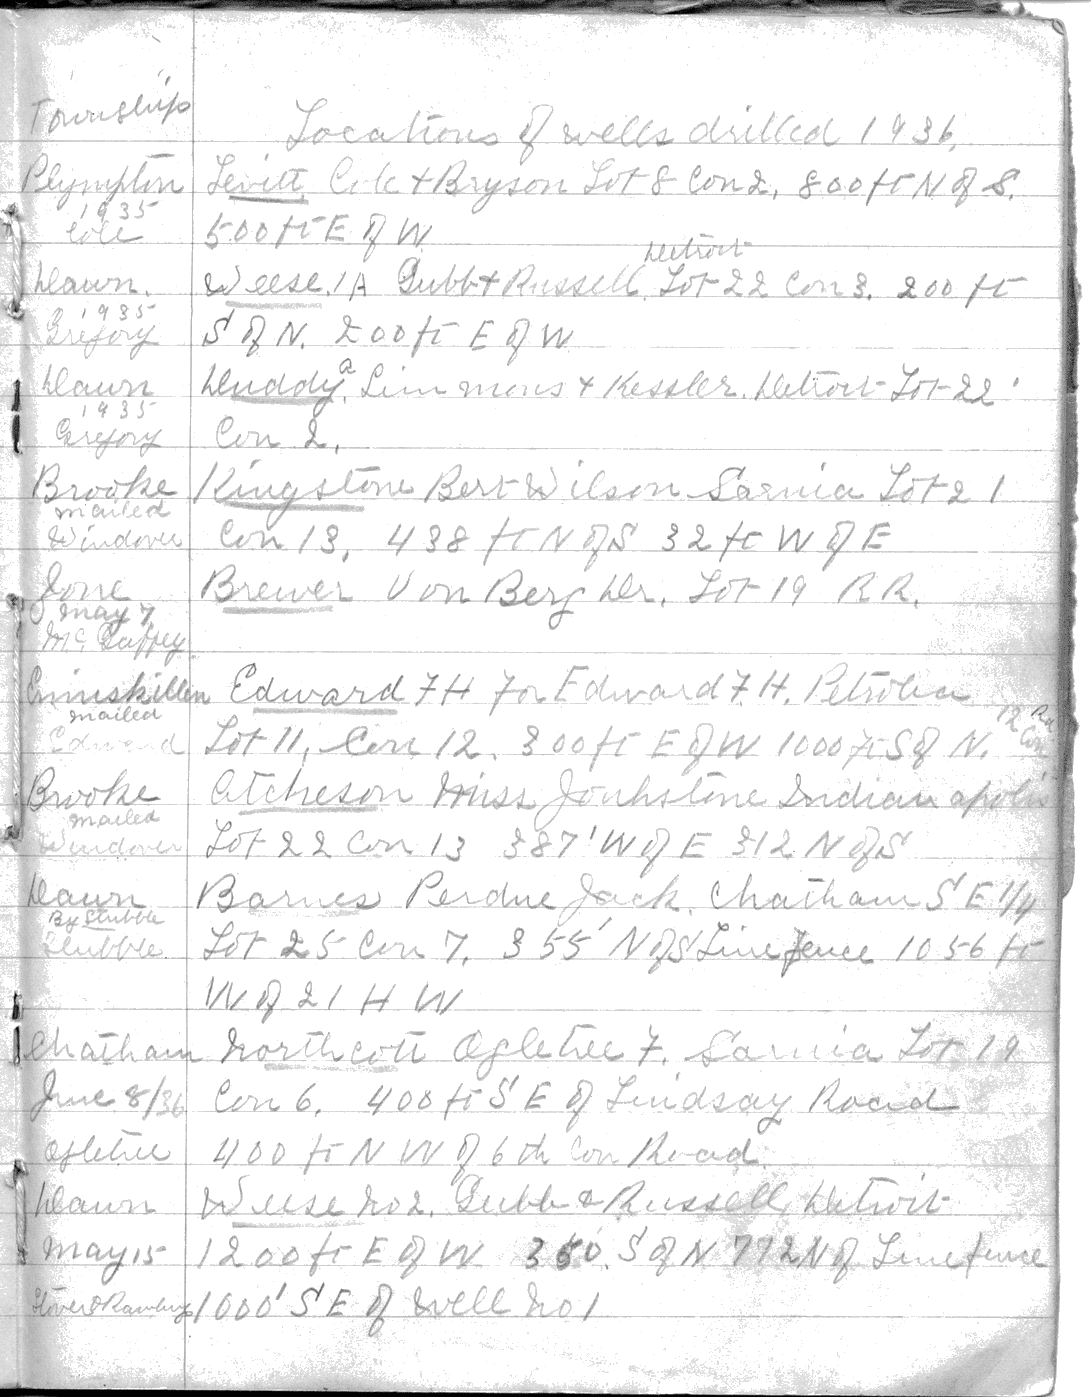 Townships
Locations of wells drilled 1936.
Plympton Levitt, Cole + Bryson Lot 8 Con 2, 800 ft N of S.
1935
Cole 500 ft E of W
Detroit
Dawn. Weese. 1A Gubb + Russell, Lot 22 Con 3. 200 ft
1935
Gregory S of N. 200 ft E of W
Dawn Duddy, Simmons + Kessler. Detroit Lot 22
1935
Gregory Con 2.
Brooke Kingstone Bert Wilson Sarnia Lot 21
mailed
Windover Con 13, 438 ft N of S 32 ft W of E
Zone Brewer Von Berg Dr. Lot 19 R R.
May 7
McGaffey
Enniskillen Edward F H for Edward F. H. Petrolea
mailed 12 Con Rd
Edward Lot 11, Con 12. 300 ft E of W 1000 ft S of N.
Brooke Atcheson Miss Jonhstone Indianapolis
mailed
Windover Lot 22 Con 13 387' W of E 312 N of S
Dawn Barnes Perdue Jack. Chatham S E 1/4
By Stubble
Stubble Lot 25 Con 7, 355' N of S Line fence 1056 ft
W of 21 H W
Chatham Northcott Ogletree F. Sarnia Lot 19
June 8/36 Con 6. 400 ft S E of Lindsay Road
Ogletree 400 ft N W of 6th Con Road
Dawn Weese No 2. Gubb & Russell, Detroit
May 15 1200 ft E of W 350. S of N 772 N of Line fence
1000' S E of Well No 1